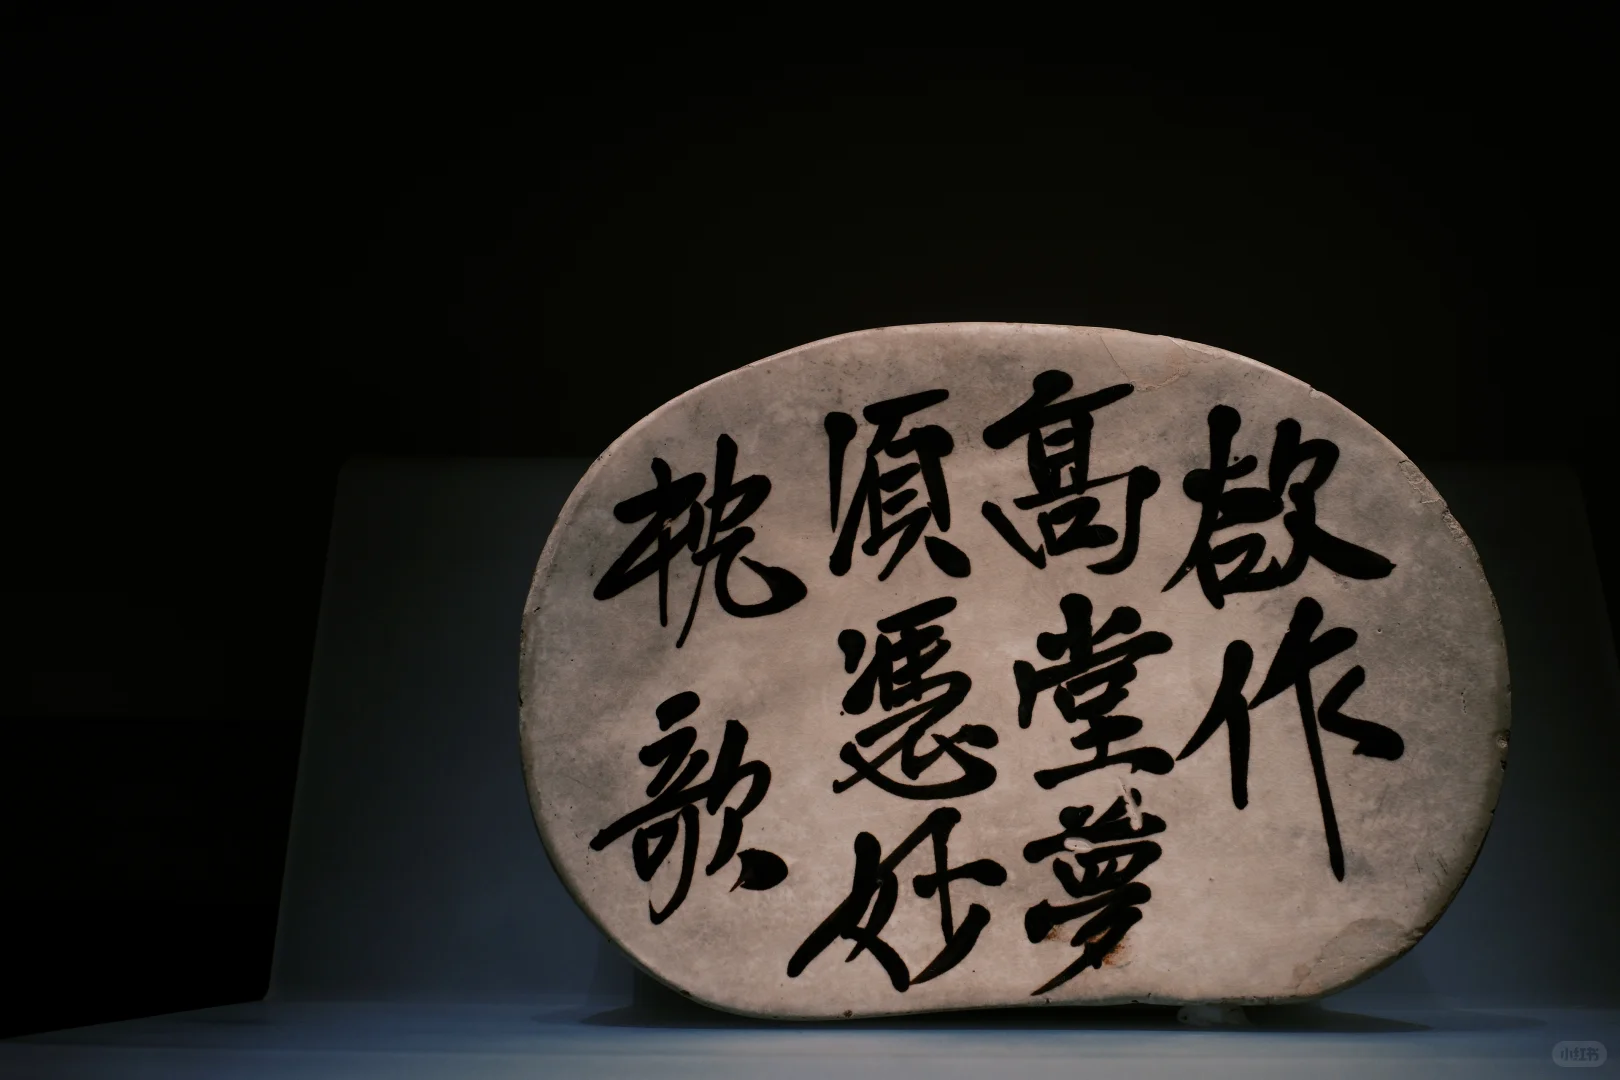 欲作
高堂夢
須憑妙
枕歌
小红书